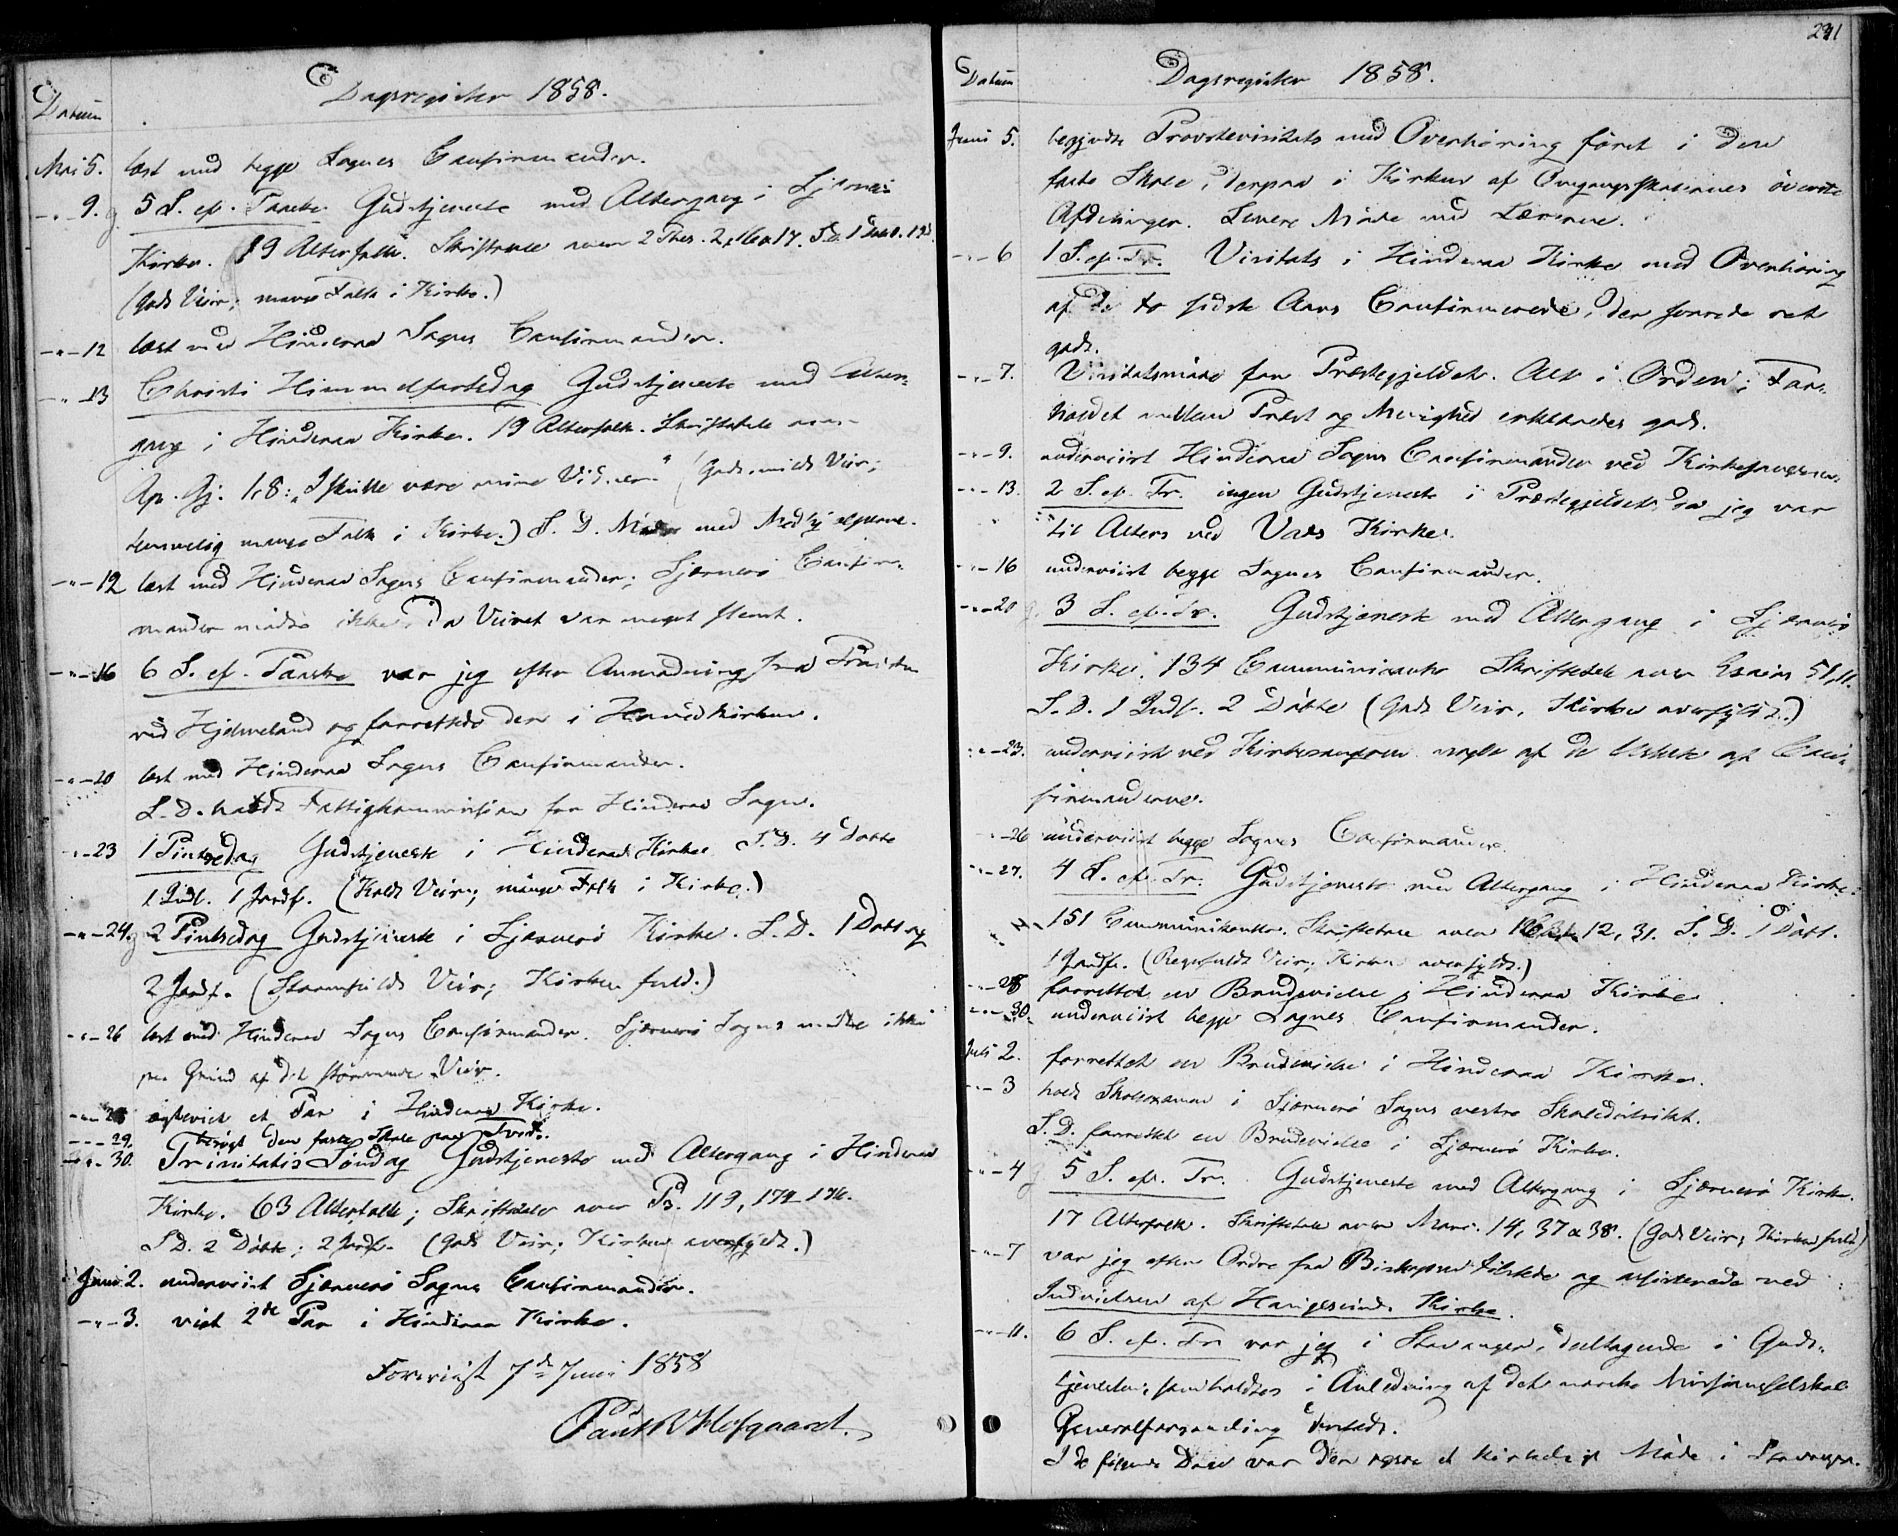 Dagsregister 1858.
Datum
Mai 5. læst med begge Sognes Confirmander.
-"- 9. 5 S. ef. Paaske. Gudstjeneste med Altergang i Sjærnerø
Kirke. 19 Alterfolk. Skriftetale over 2 Thes. 2, 16 & 17. S. D. 1
(godt Veir; mange Folk i Kirke.)
-"- 12 læst med Hinderaa Sogns Confirmander.
-"- 13 Christi Himmelfartsdag Gudstjeneste med Alter-
gang i Hinderaa Kirke. 19 Alterfolk. Skriftetale over
Ap. Gj. 1,8: "I skulle være mine Vidner" (Godt, mildt Veir;
temmelig mange Folk i Kirke.) S. D. Møde med Medhjelperne.
-"- 12 læst med Hinderaa Sogns Confirmander; Sjærnerø Confir-
mander mødte ikke, da Veiret var meget slemt.
-"- 16 6 S. ef. Paaske var jeg efter Anmodning fra Præsten
ved Hjelmeland og forrettede der i Hovedkirken.
-"- 20 læst med Hinderaa Sogns Confirmander.
S. D. holdt Fattigkommission for Hinderaa Sogn.
-"- 23 1 Pintsedag Gudstjeneste i Hinderaa Kirke S. D. 4 Døbte
1 Indl. 1 Jordf. (Koldt Veir; mange Folk i Kirke.)
-"- 24. 2 Pintsedag Gudstjeneste i Sjærnerø Kirke. S. D. 1 Døbt og
2 Jordf. (Stormfuldt Veir; Kirken fuld.)
-"- 26 læst med Hinderaa Sogns Confirmander. Sjærnerø Sogns mødte ikke
paa Grund af det stormende Veir.
-"- 28 ægteviet et Par i Hinderaa Kirke.
-"- 29. besøgt den faste Skole paa Tveit.
-"- 30. Trinitatis Søndag Gudstjeneste med Altergang i Hinderaa
Kirke. 63 Alterfolk; Skriftetale over Ps. 119, 174-176.
S D. 2 Døbte; 2 Jordf. (Godt Veir; Kirken overfyldt.)
Juni 2. underviist Sjærnerø Sogns Confirmander.
-"- 3. viet 2de Par i Hinderaa Kirke.
Foreviist 7de Juni 1858
Hofgaard.
291
Dagsregister 1858.
Datum
Juni 5. begyndte Provstevisitats med Overhøring først i den
faste Skole, derpaa i Kirken af Omgangsskolernes øverste
Afdelinger. Senere Møde med Lærerne.
-"- 6 1 S. ef. Tr. Visitats i Hinderaa Kirke med Overhøring
af de to sidste Aars Confirmerede, der svarede ret
godt.
-"- 7. Visitatsmøde for Præstegjeldet. Alt i Orden; For-
holdet mellem Præst og Menighed erklæredes godt.
-"- 9. underviist Hinderaa Sogns Confirmander ved Kirkesangeren.
-"- 13. 2 S. ef. Tr. ingen Gudstjeneste i Præstegjeldet, da jeg var
til Alters ved Vats Kirke.
-"- 16 underviist begge Sognes Confirmander.
-"- 20 3 S. ef. Tr. Gudstjeneste med Altergang i Sjærnerø
Kirke. 134 Communicanter Skriftetale over Esaias 51, 11.
S. D. 1 Indl. 2 Døbte (Godt Veir, Kirken overfyldt.)
-"- 23. underviist ved Kirkesangeren nogle af de af Con-
firmanderne.
-"- 26 underviist begge Sognes Confirmander.
-"- 27. 4 S. ef. Tr. Gudstjeneste med Altergang i Hinderaa Kirke.
151 Communikanter. Skriftetale over 12, 31. S. D. 1 Døbt.
1 Jordf. (Regnfuldt Veir; Kirken overfyldt.)
-"- 28 forrettet en Brudevielse i Hinderaa Kirke
-"- 30. underviist begge Sognes Confirmander.
Juli 2. forrettet en Brudevielse i Hinderaa Kirke.
-"- 3 holdt Skoleexamen i Sjærnerø Sogns vestre Skoledistrikt.
S. D. forrettet en Brudevielse i Sjærnerø Kirke.
-"- 4 5 S. ef. Tr. Gudstjeneste med Altergang i Sjærnerø Kirke.
17 Alterfolk. Skriftetale over Marc. 14, 37 & 38. (Godt Veir; Kirken fuld)
-"- 7 var jeg efter Ordre fra Biskopen tilstede og assisterede ved
Indvielsen af Haugesund. Kirke.
-"- 11. 6 S. ef. Tr. var jeg i Stavanger, deltagende i Guds-
tjenesten, som holdtes i Anledning af det norske Missionsselskabs
Generalforsamling dersteds.
I de følgende Dage var der et kirkeligt Møde i Stavanger.